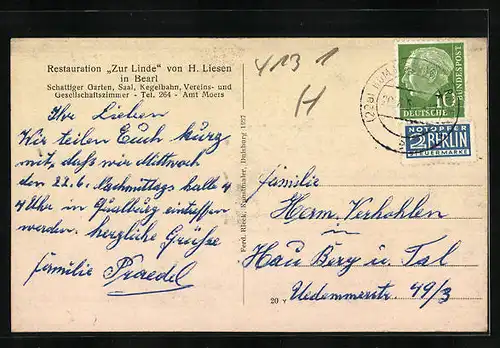 Restauration „Zur Linde" von H. Liesen
in Bearl
Schattiger Garten, Saal, Kegelbahn, Vereins- und
Gesellschaftszimmer - Tel. 264 - Amt Moers
Ihr Lieben
Wir teilen Euch kurz
mit, daß wir Mittwoch
den 22.6. Nachmittags halb 4
4 Uhr in Qualburg eintreffen
werden. herzliche Grüße
familie Praedel
Ferd. Rieck, Kunstmaler, Duisburg 1927
4131
H
(22a)
10
DEUTSCHE
BUNDESPOST
NOTOPFER
2 BERLIN
STEUERMARKE
familie
Herm. Verhohlen
in
Hau Berg u. Tal
Uedemmerstr. 49/3
20 Y